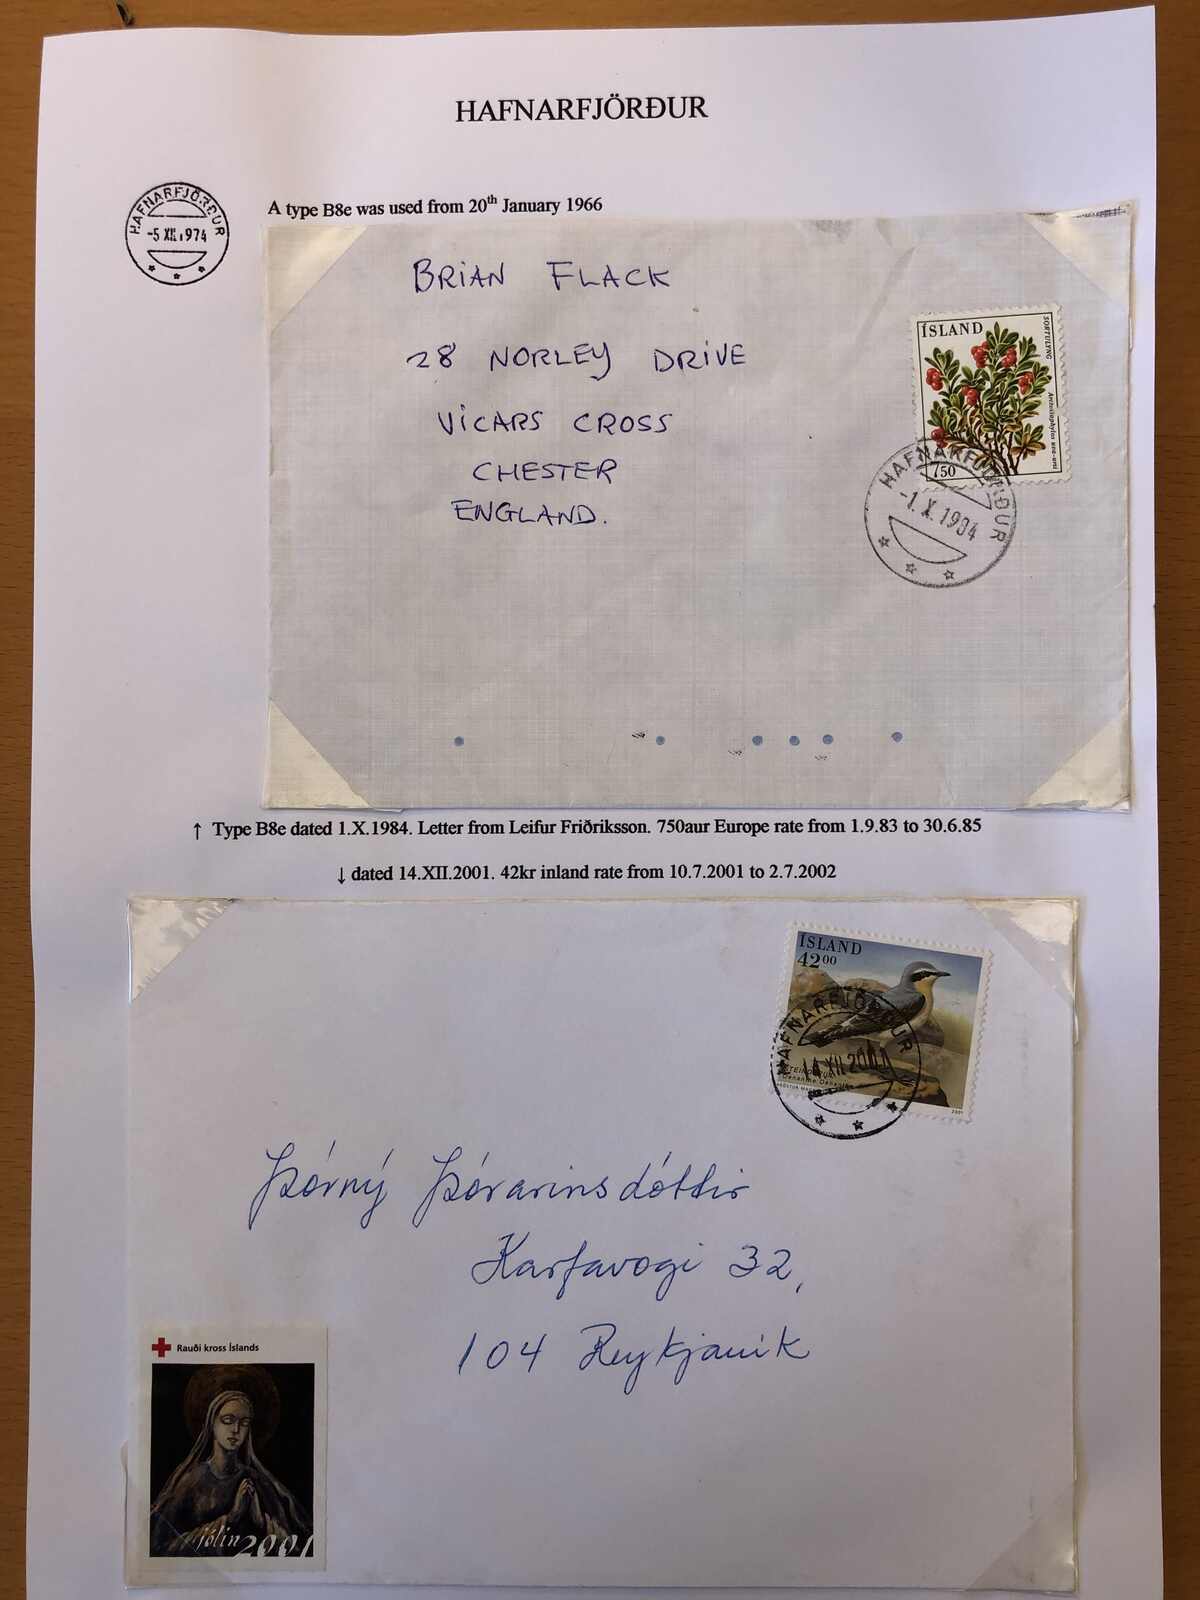 HAFNARFJÖRÐUR
HAFNARFJÖRÐUR
-5 XII.1974
A type B8e was used from 20th January 1966
BRIAN FLACK
28 NORLEY DRIVE
VICARS CROSS
CHESTER
ENGLAND.
ÍSLAND
SORTULYNG
Arctostaphylos uva-ursi
750
HAFNARFJÖRÐUR
-1. X. 1984
↑ Type B8e dated 1.X.1984. Letter from Leifur Friðriksson. 750aur Europe rate from 1.9.83 to 30.6.85
↓ dated 14.XII.2001. 42kr inland rate from 10.7.2001 to 2.7.2002
ÍSLAND
42.00
HAFNARFJÖRÐUR
14 XII 2001
2001
Þórný Þórarinsdóttir
Karfavogi 32,
104 Reykjavík
Rauði kross Íslands
jólin 2001